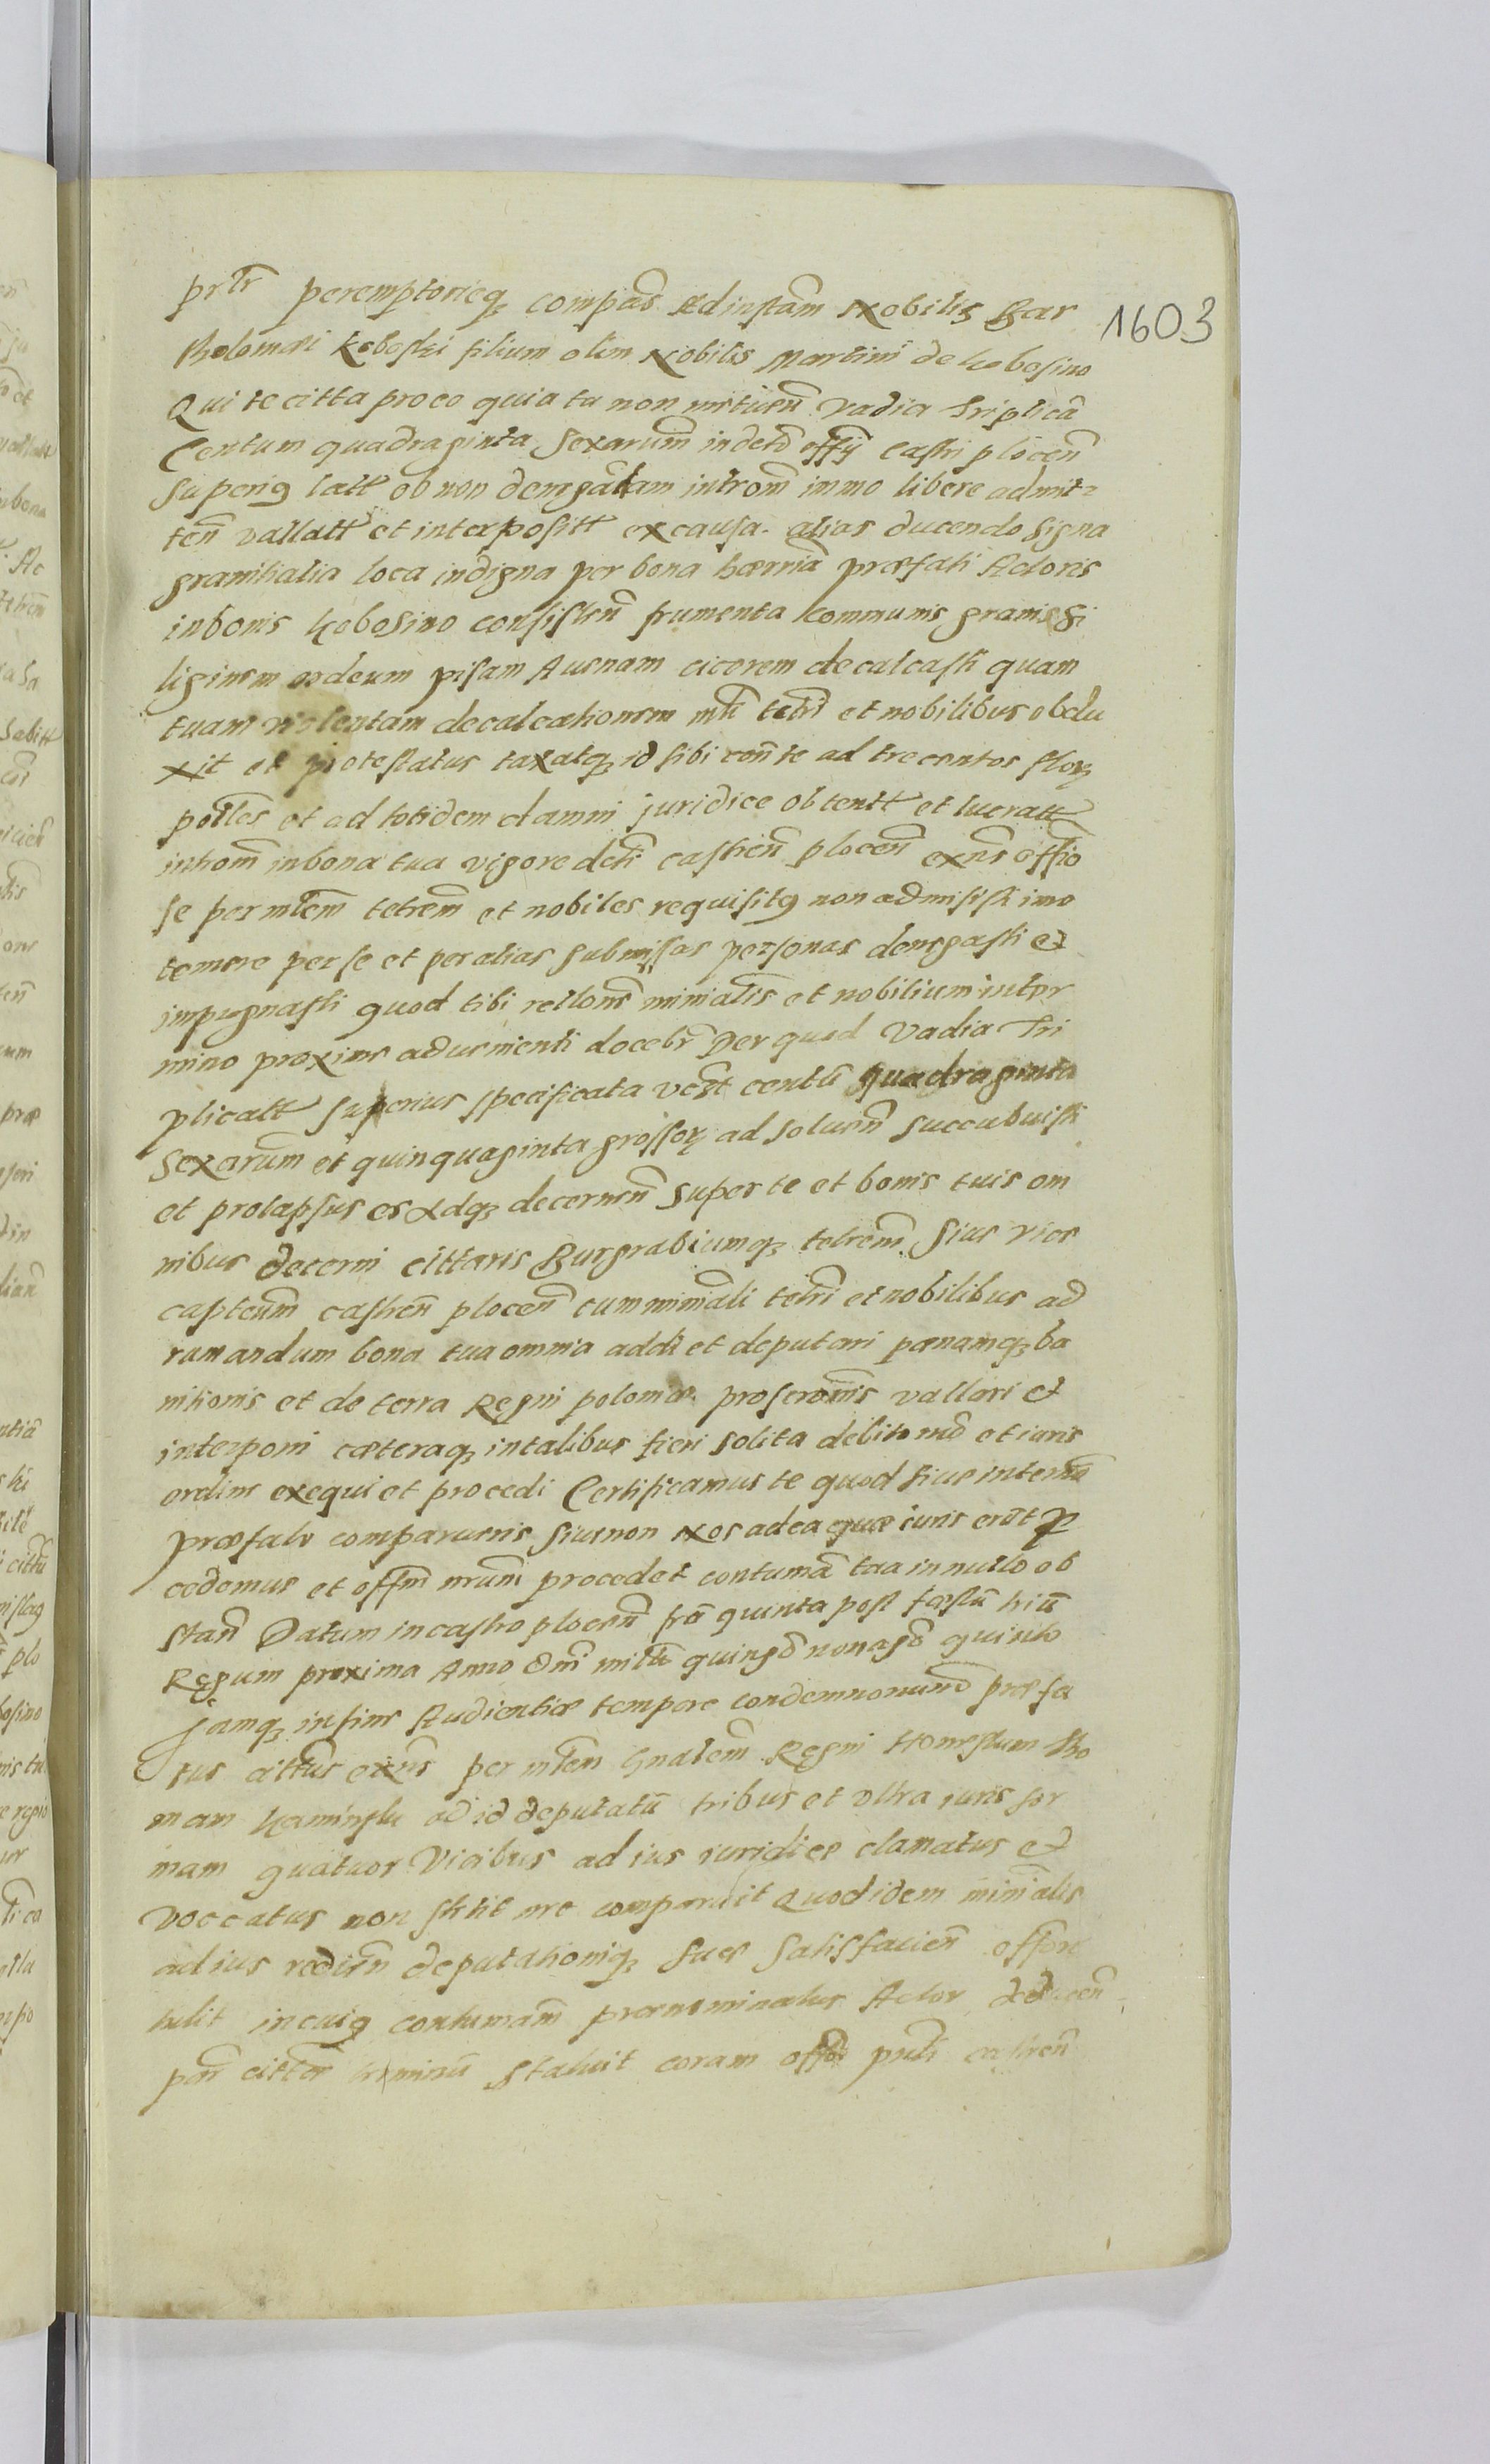 prtr peremptorieq compas Ad instam Nobilis Bar
tholomæi Koboski filium olim Nobilis Martini de Kobosino
Qui te citta pro eo quia tu non metuen vadia triplica
Centum quadraginta sexarum in decto offij castri plocen
superiq latt ob non denegatam introm immo libere admit=
ten vallatt et interpositt ex causa. alias ducendo signa
granitialia loca indigna per bona hærria præfati Actoris
in bonis Kobosino consisten frumenta communis granis si
liginem ordeum pisam Avenam cicerem decalcasti quam
tuam violentam decalcationem mli tetri et nobilibus obdu
xit et protestatus taxatq id sibi conte ad trecentos flor
polles et ad totidem damni juridice obtentt et lucratt
introm in bona tua vigore decti castren plocen exns offio
se per mlem tetrem et nobiles requisitq non admisisti imo
temere per se et per alias submissas personas denegasti et
impugnasti quod tibi rellone minialis et nobilium in ter
mino proxime advenienti docebr Per quod vadia tri
plicatt superius specificata vert centu quadraginta
sexarum et quinquaginta grossor ad soluen succubuisti
et prolapsus es Adq decernen super te et bonis tuis om
nibus decerni cittaris Burgrabiumq tetrem siue vice
capteum castren plocen cum miniali tetri et nobilibus ad
rumandum bona tua omnia addi et deputari pænamq ba
nitionis et de terra Regni poloniæ proscronis vallari et
interponi cæteraq in talibus fieri solita debito mo et iuris
ordine exequi et procedi Certificamus te quod siue in termo
præfato comparueris siue non Nos ad ea quæ iuris erut p
cedemus et offm nrum procedet contuma tua in nullo ob
stan Datum in castro plocen fra quinta post fæstu triu
Regum proxima Anno dni millo quingo nonago quinto
Jamq in fine Audientiæ tempore condemnonum præfa
tus cittus exns per mlem Gnalem Regni Honestum Tho
mam ad id deputatu tribus et vltra iuris for
mam quatuor vicibus ad ius juridice clamatus et
voccatus non stetit nec comparuit Quod idem minialis
ad ius redien deputationiq suæ satisfacien offo re
tulit in cuiq contumam prænominatus Actor deducen
pn citte terminu statuit coram offo pnti castren
1603